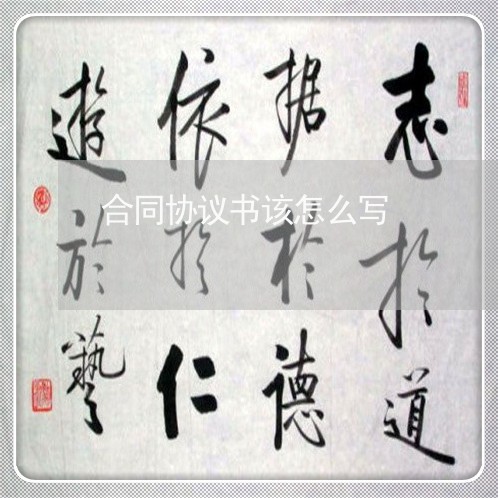 合同协议书该怎么写
志於道
据於德
依於仁
遊於藝